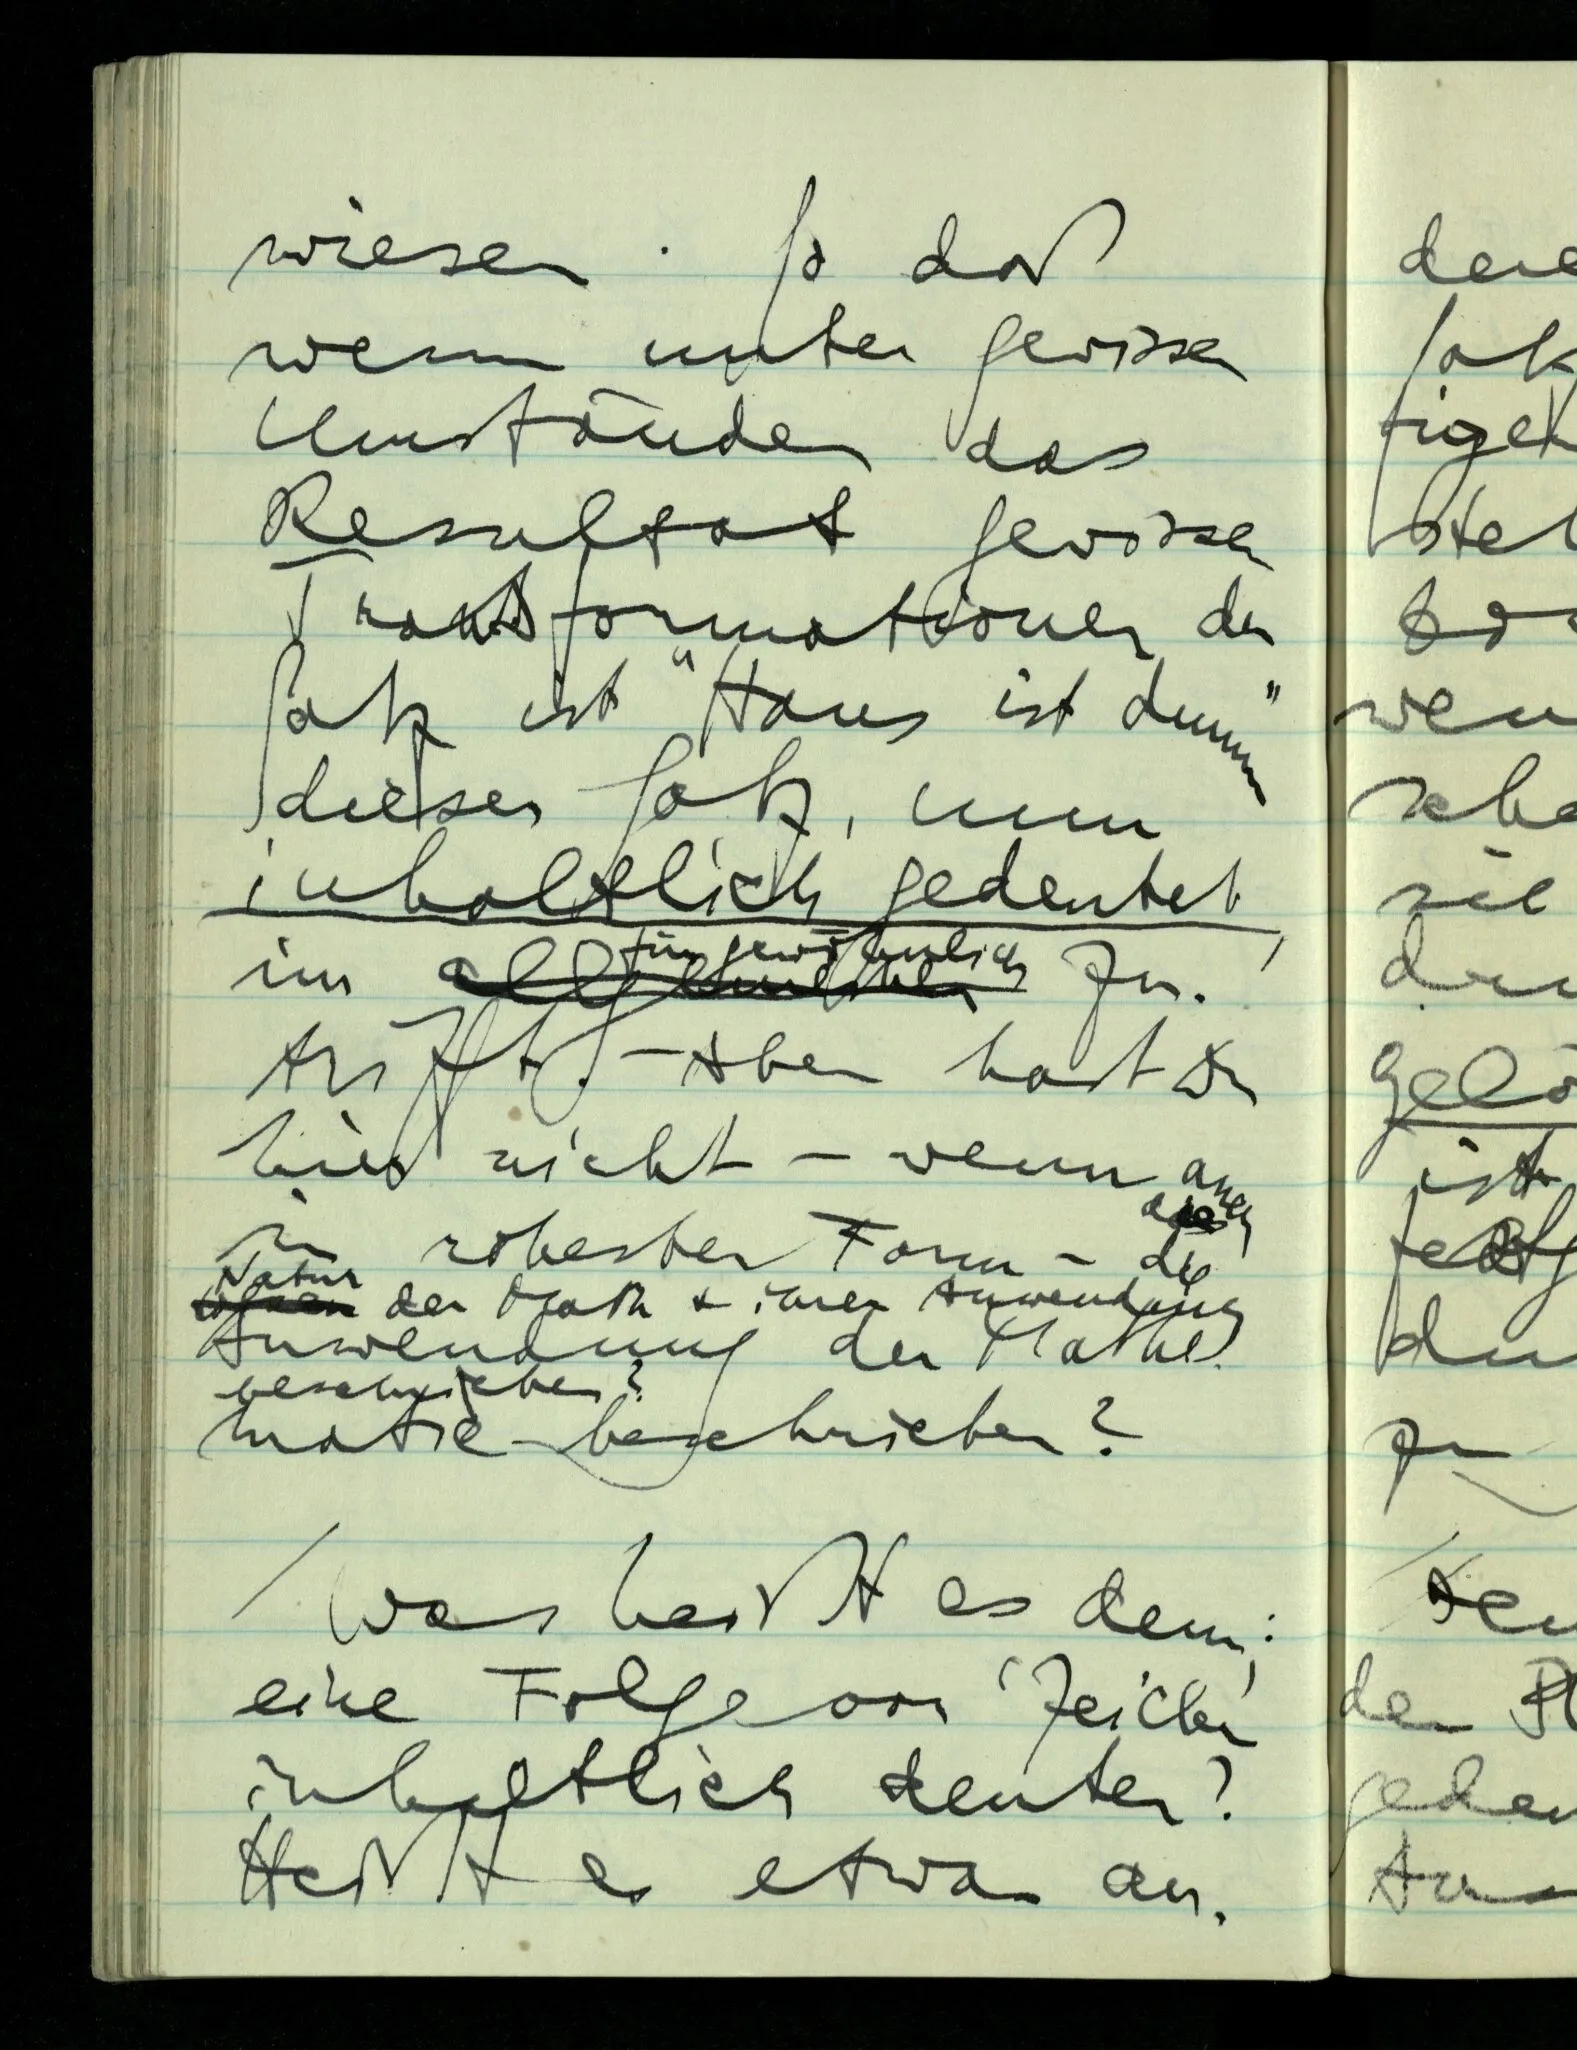 wiesen. So daß
wenn unter gewissen
Umständen das
Resultat gewisser
Transformationen der
Satz ist "Hans ist dumm"
dieser Satz, nun
inhaltlich gedeutet,
für gewöhnlich
im allgemeinen zu-
trifft. – Aber hast Du
hier nicht – wenn auch
in rohester Form – die
Natur
der Math & ihrer Anwendung
Anwendung der Mathe-
beschrieben?
matik beschrieben?
/ Was heißt es denn:
eine Folge von 'Zeichen'
inhaltlich deuten?
Heißt es etwa an-
dere
Satz
figel
stel
wen
sche
sie
dan
gelö
ist
festg
du
zu
/ Den
den
geden